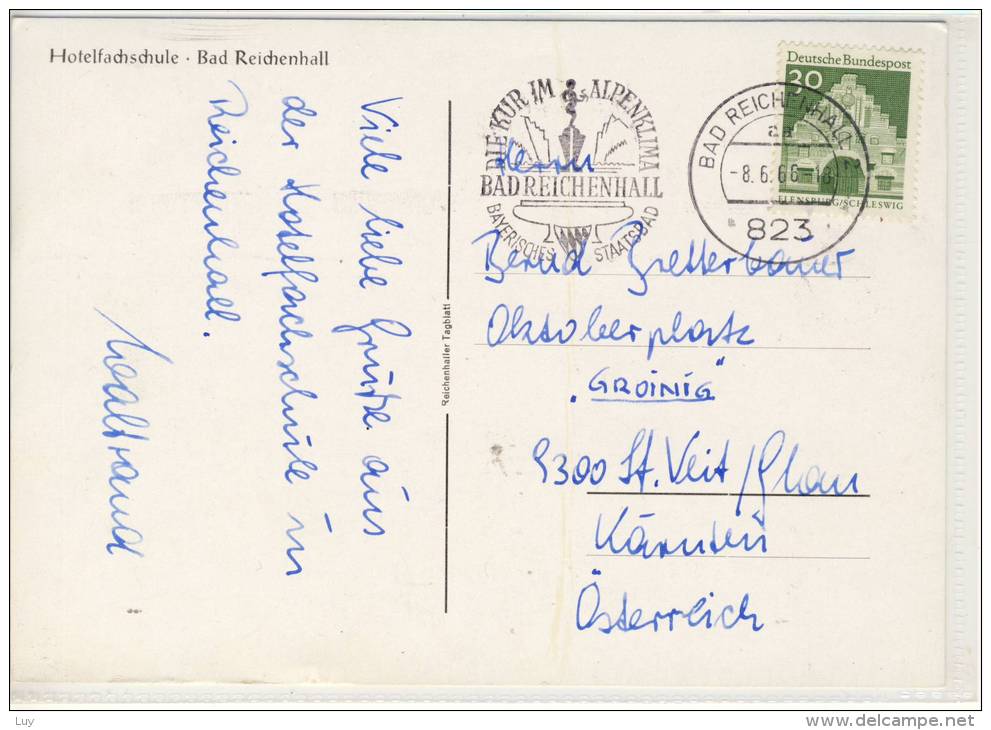 Hotelfachschule · Bad Reichenhall
Viele liebe Grüße aus
der Hotelfachschule in
Reichenhall.
Waltraud
Reichenhaller Tagblatt
DIE KUR IM ALPENKLIMA
BAD REICHENHALL
BAYERISCHES STAATSBAD
BAD REICHENHALL
aa
-8.6.66-18
823
Deutsche Bundespost
30
FLENSBURG/SCHLESWIG
Herrn
Bernd Bretterbauer
Oktoberplatz
„GROINIG“
9300 St. Veit/Glan
Kärnten
Österreich
Luy
www.delcampe.net